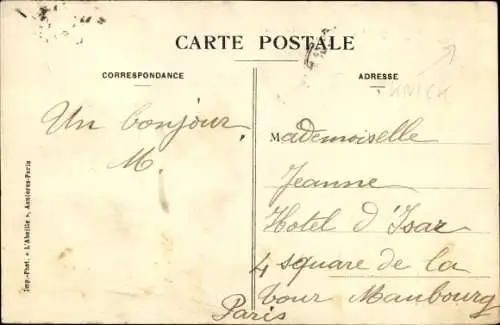 CARTE POSTALE
CORRESPONDANCE
ADRESSE
KNICK
Un bonjour
M.
Mademoiselle
Jeanne
Hotel d'Isar
4 square de la
tour Maubourg
Paris
Imp.-Phot. « L'Abeille », Asnières-Paris